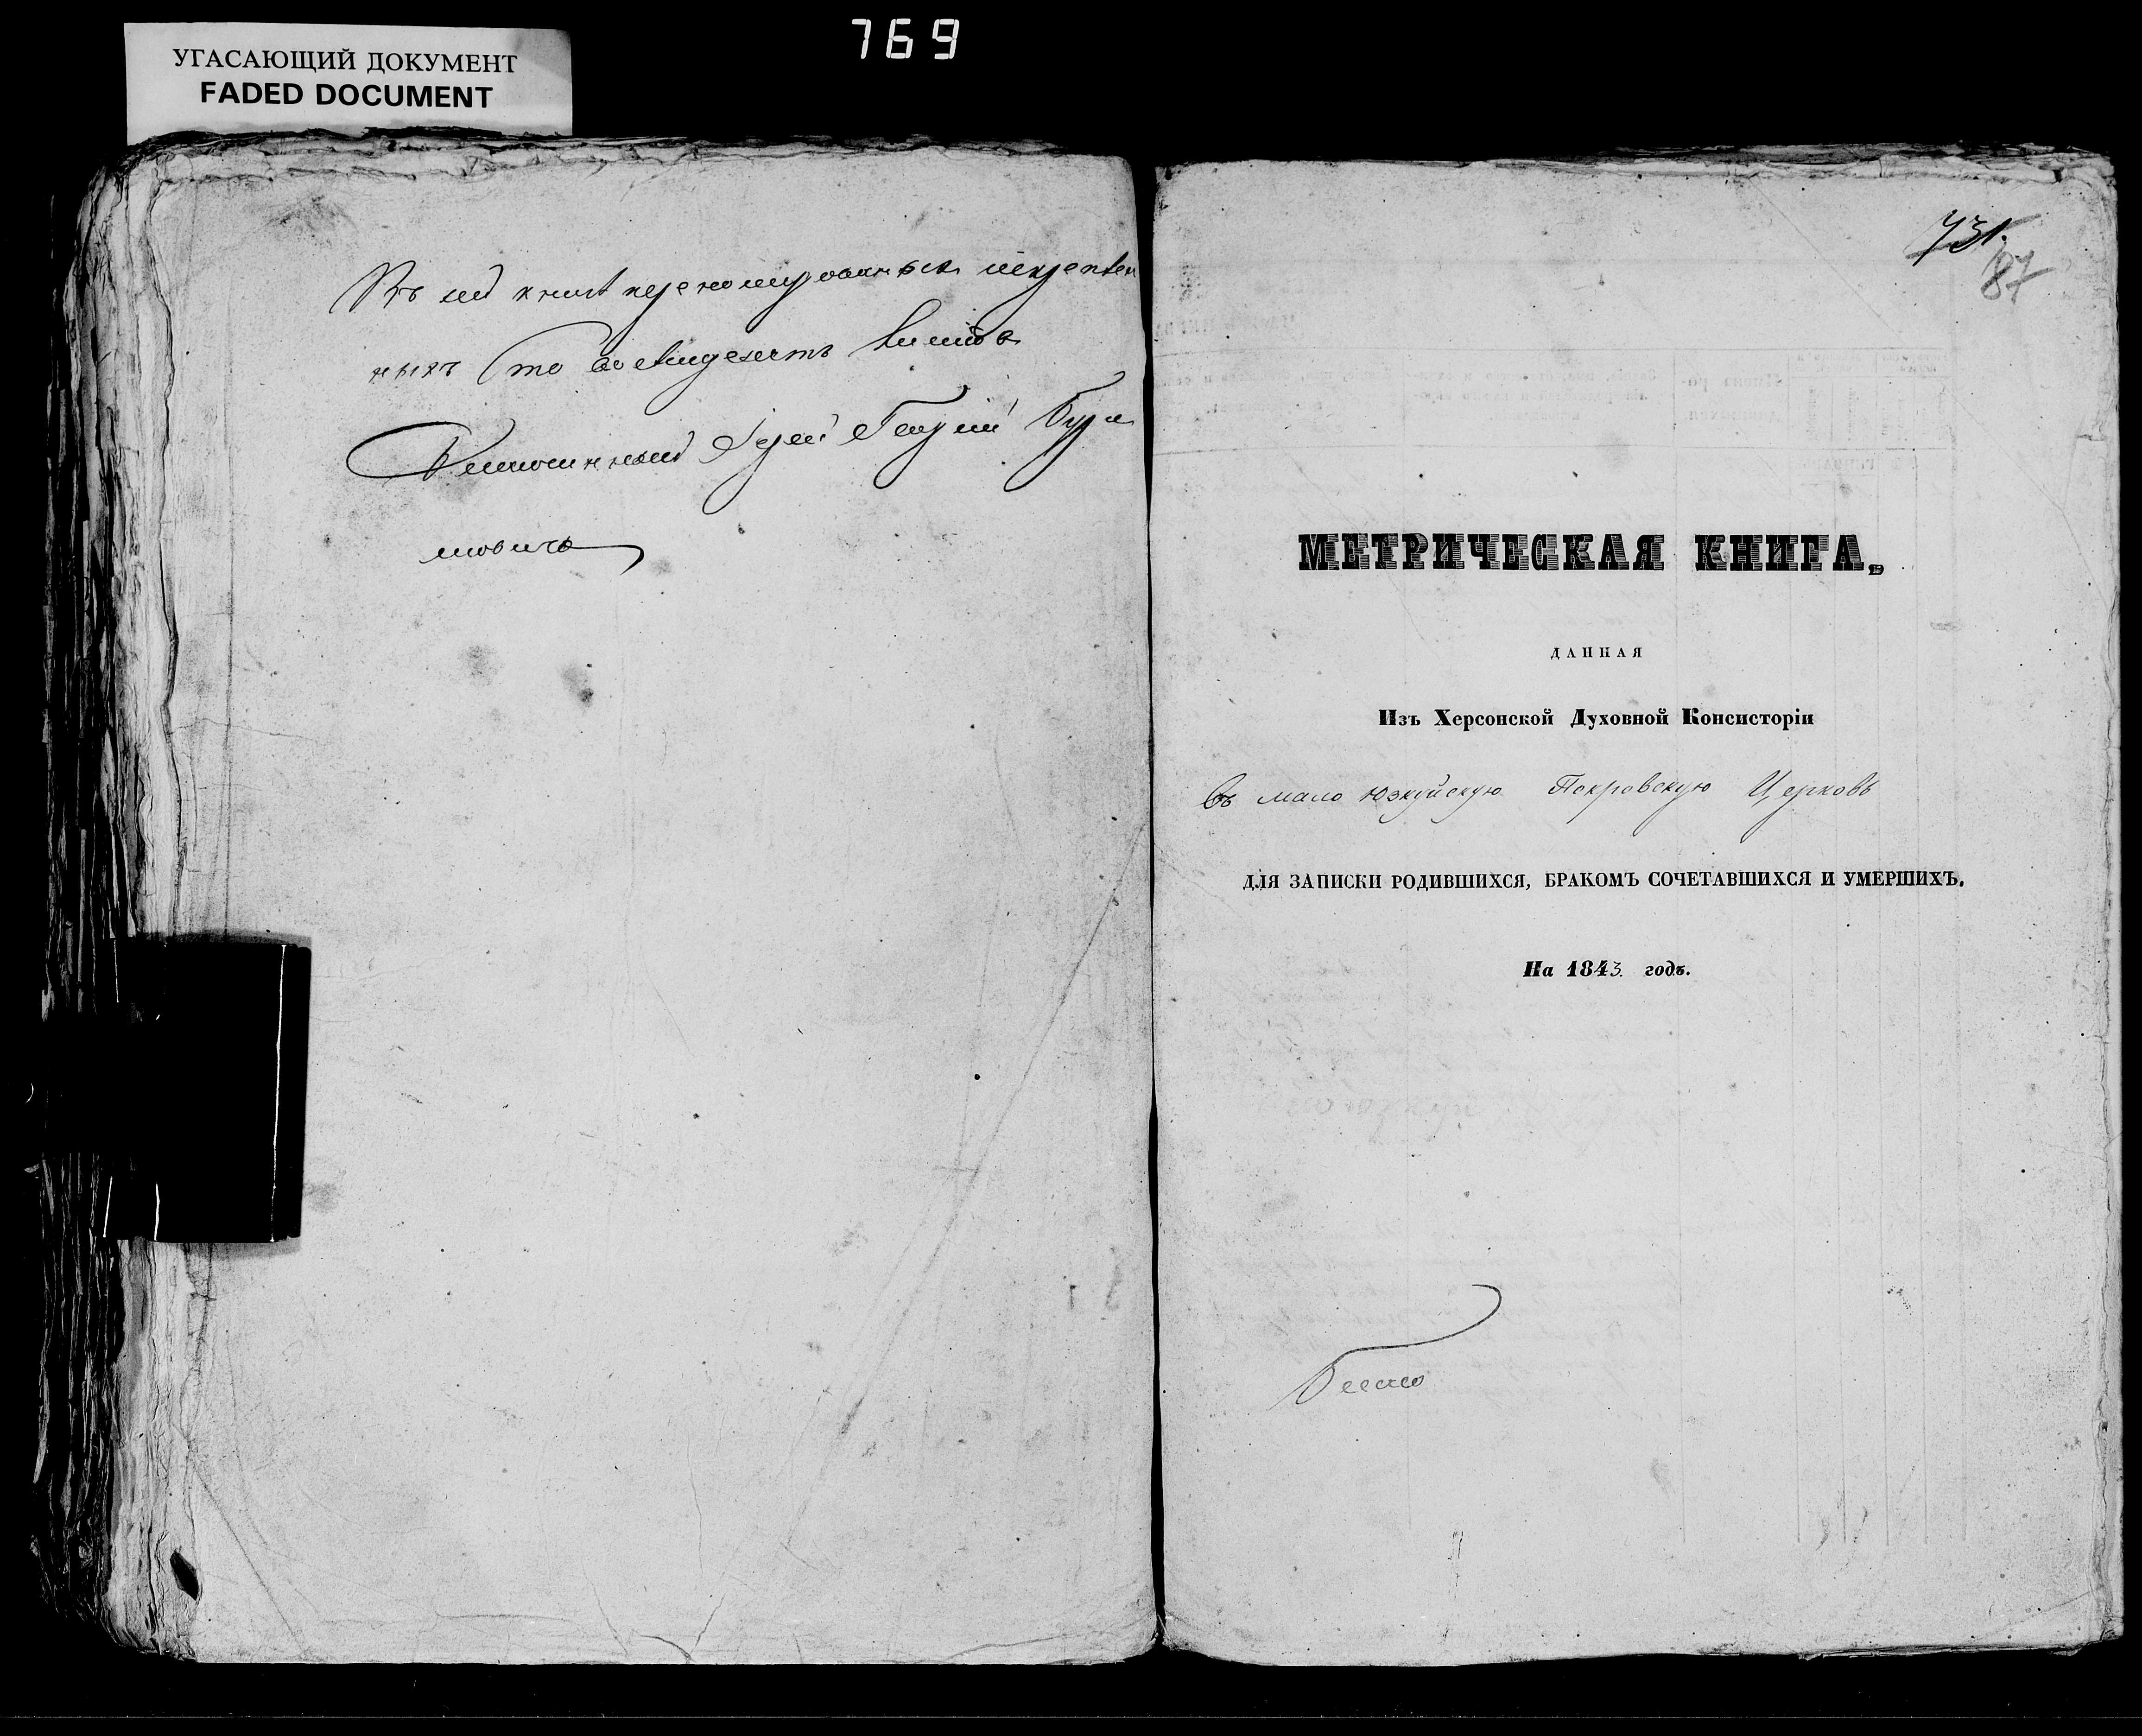 769
УГАСАЮЩИЙ ДОКУМЕНТ
FADED DOCUMENT
Въ сей книгѣ перенумерованныхъ искреплен
ныхъ сто восемдесятъ листовъ
Благочинный Іерей Георгій
мовичь
731.
87
МЕТРИЧЕСКАЯ КНИГА,
ДАННАЯ
Изъ Херсонской Духовной Консисторіи
Въ мало юзкуйскую Покровскую Церковь
ДЛЯ ЗАПИСКИ РОДИВШИХСЯ, БРАКОМЪ СОЧЕТАВШИХСЯ И УМЕРШИХЪ.
На 1843. годъ.
Благо